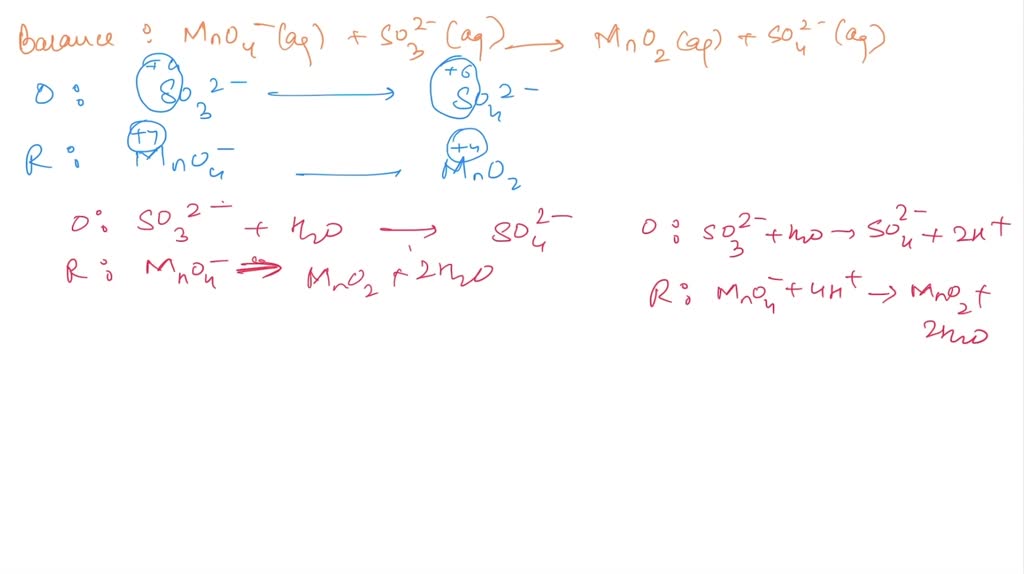 Balance : MnO₄⁻(aq) + SO₃²⁻(aq) → MnO₂(aq) + SO₄²⁻(aq)
O : SO₃²⁻ → +6 SO₄²⁻
R : +7 MnO₄⁻ → +4 MnO₂
O : SO₃²⁻ + H₂O → SO₄²⁻
R : MnO₄⁻ → MnO₂ + 2H₂O
O : SO₃²⁻ + H₂O → SO₄²⁻ + 2H⁺
R : MnO₄⁻ + 4H⁺ → MnO₂ +
2H₂O